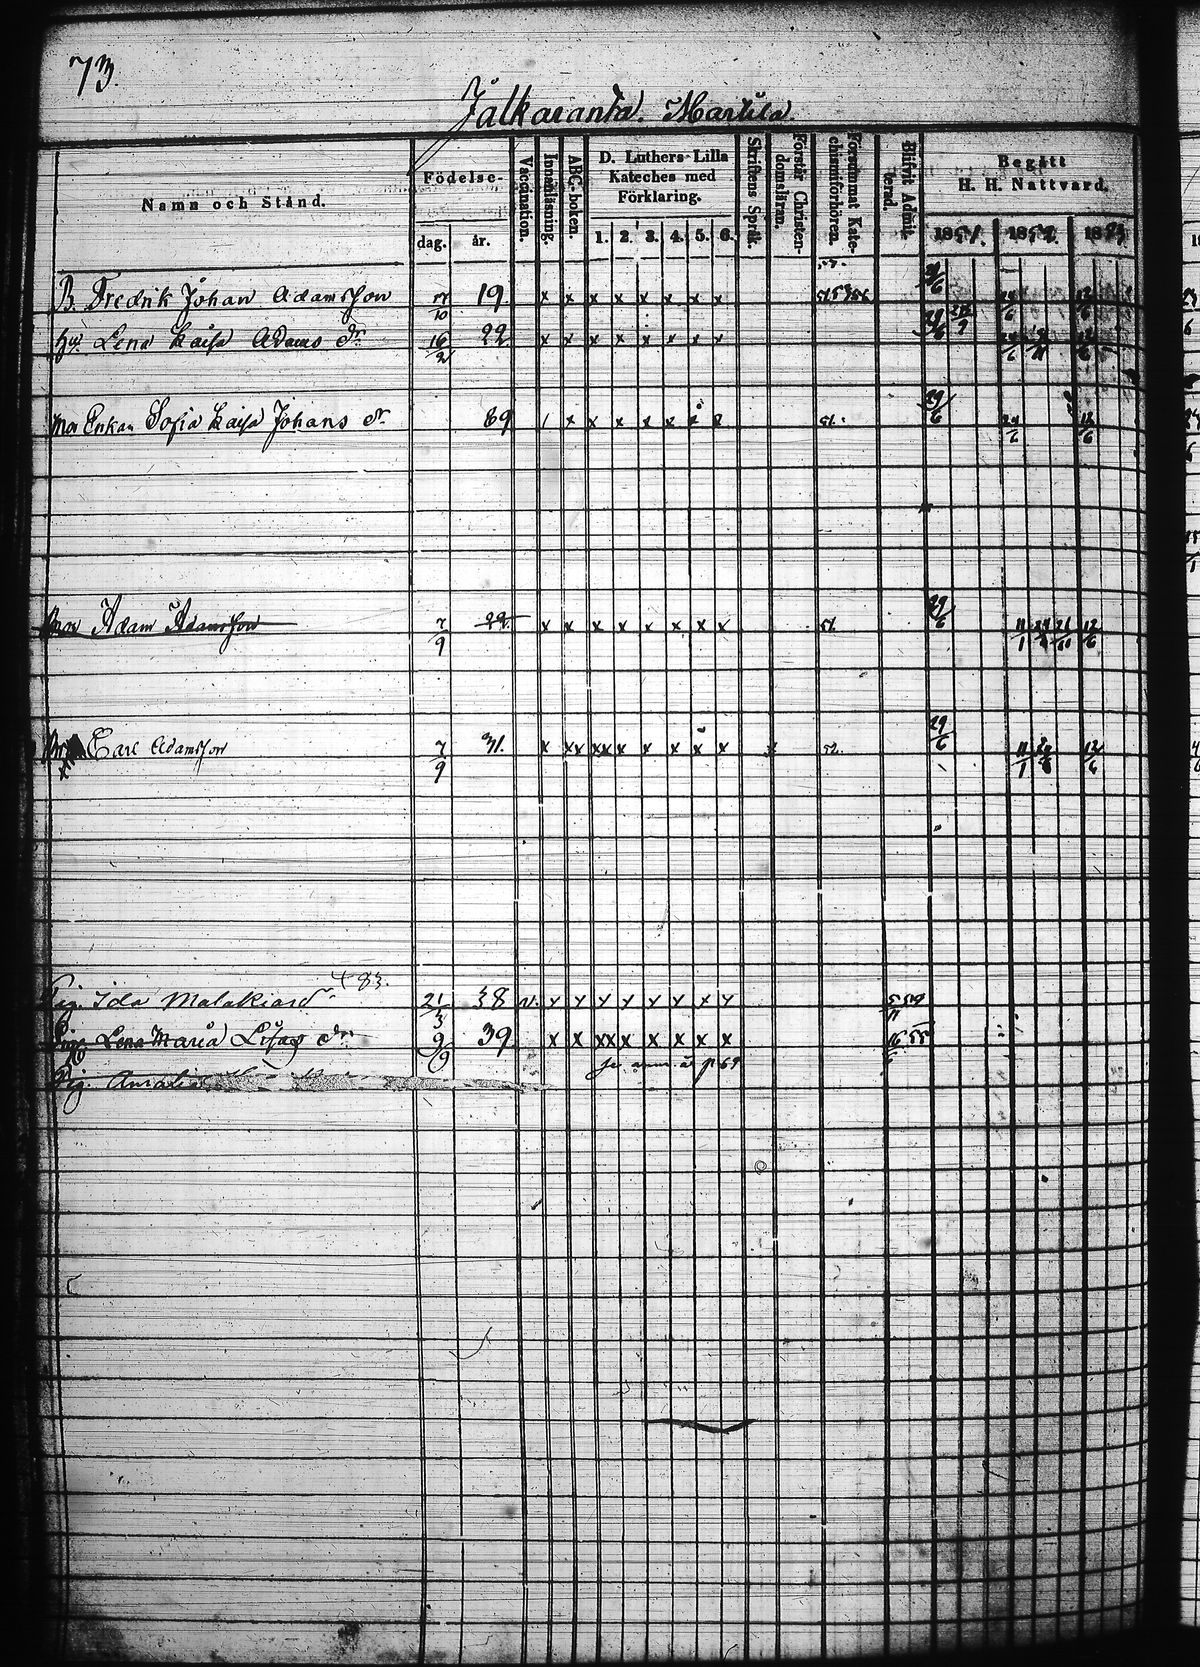 73.
Jälkaranta. Marttila
Namn och Stånd.
Födelse-
dag. år.
Vaccination.
Innanläsning.
ABC-boken.
D. Luthers Lilla
Kateches med
Förklaring.
1. 2. 3. 4. 5. 6.
Skriftens Språk.
Förstår Christen-
domsläran.
Försummat Kate-
chismiförhören.
Blifvit Admit-
terad.
Begått
H. H. Nattvard.
1851. 1852. 1853
B. Fredrik Johan Adamsson 17/10 19. x x x x x x x x
Hu. Lena Kaisa Adams dr 16/2 22 x x x x x x x x
Mor Enkan Sofia Kaisa Johans dr 69 / x x x x x 51. 29/6 24/6 12/6
Adam Adamsson 7/9 22 x x x x x x x x 51. 29/6 11/1 12/6
Carl Adamsson 7/9 31. x xx xx x x x x x 52. 29/6 11/1 12/6
483.
Pig. Ida Malakiasdr 21/3 38 v. x x x x x x x x
Lena Maria dr 9/9 39 x x xx x x x x x 16 55
se anm. å p 69
Pig. Amalia